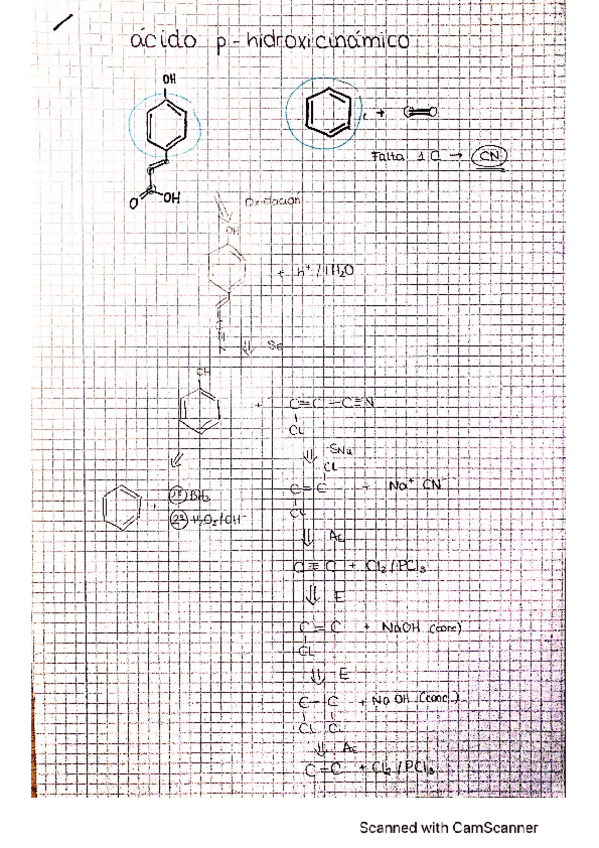 ácido p-hidroxicinámico
OH
+ C=C
Falta 1 C → CN
O OH
Oxidación
OH
+ H⁺/H₂O
OH
+ C=C-C≡N
Cl
SNu
Cl
C=C + Na⁺ CN⁻
Cl
1º BH₃
2º H₂O₂/OH⁻
AE
C≡C + Cl₂/PCl₃
E
C=C + NaOH (conc)
Cl
E
C-C + NaOH (conc.)
Cl Cl
AE
C=C + Cl₂/PCl₃
Scanned with CamScanner